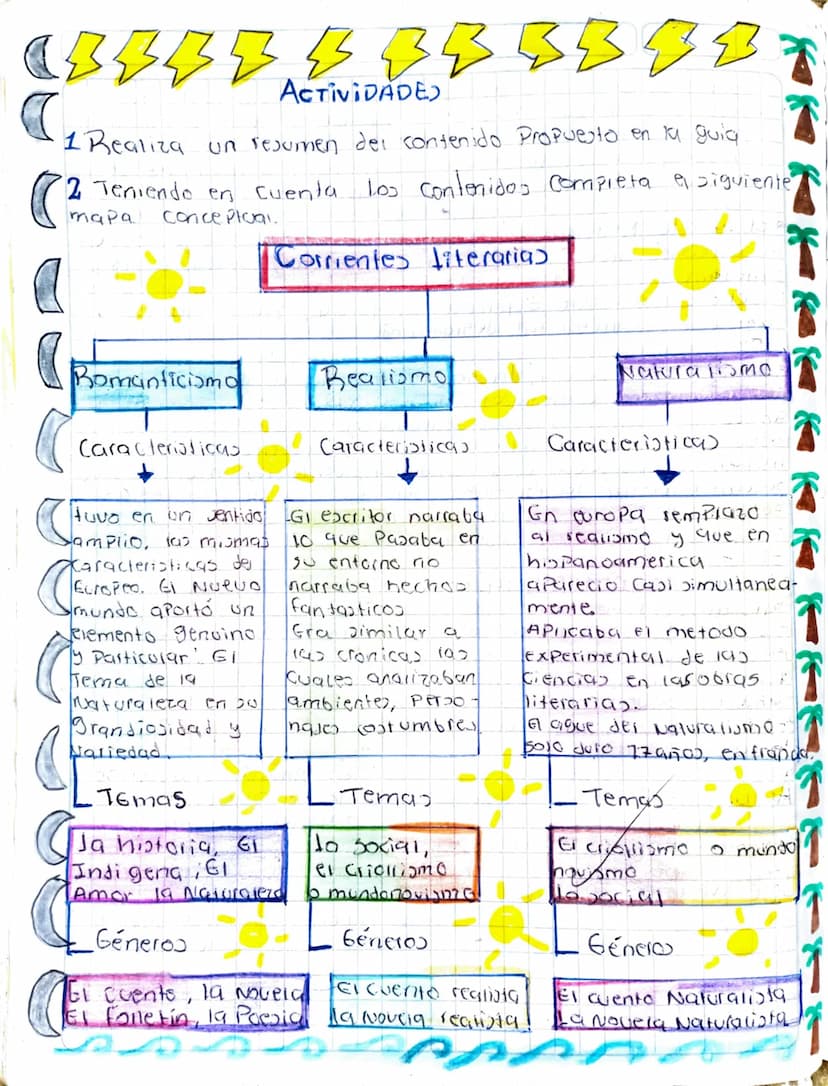 ACTIVIDADES
1 Realiza un resumen del contenido Propuesto en la guia
2 Teniendo en cuenta los contenidos completa el siguiente
mapa conceptual.
Corrientes literarias
Romanticismo
Realismo
Naturalismo
Caracteristicas
Caracteristicas
Caracteristicas
tuvo en un sentido
amplio, las mismas
caracteristicas de
Europeo. El Nuevo
mundo aportó un
elemento genuino
y Particular. El
Tema de la
Naturaleza en su
Grandiosidad y
Variedad.
El escritor narraba
lo que Pasaba en
su entorno no
narraba hechos
fantasticos
Era similar a
las cronicas las
cuales analizaban
ambientes, Perso-
najes costumbres
En europa remplazo
al realismo y que en
hispanoamerica
aparecio casi simultanea-
mente.
APlicaba el metodo
experimental de las
Ciencias en las obras
literarias.
El auge del Naturalismo
solo duro 17 años, en francia.
Temas
Temas
Temas
la historia, El
Indigena, El
Amor la Naturaleza
lo social,
el criollismo
o mundonovismo
El criollismo o mundo
novismo
lo social
Géneros
Géneros
Género
El cuento, la novela
El folletín, la Poesia
El cuento realista
la novela realista
El cuento Naturalista
La Novela Naturalista